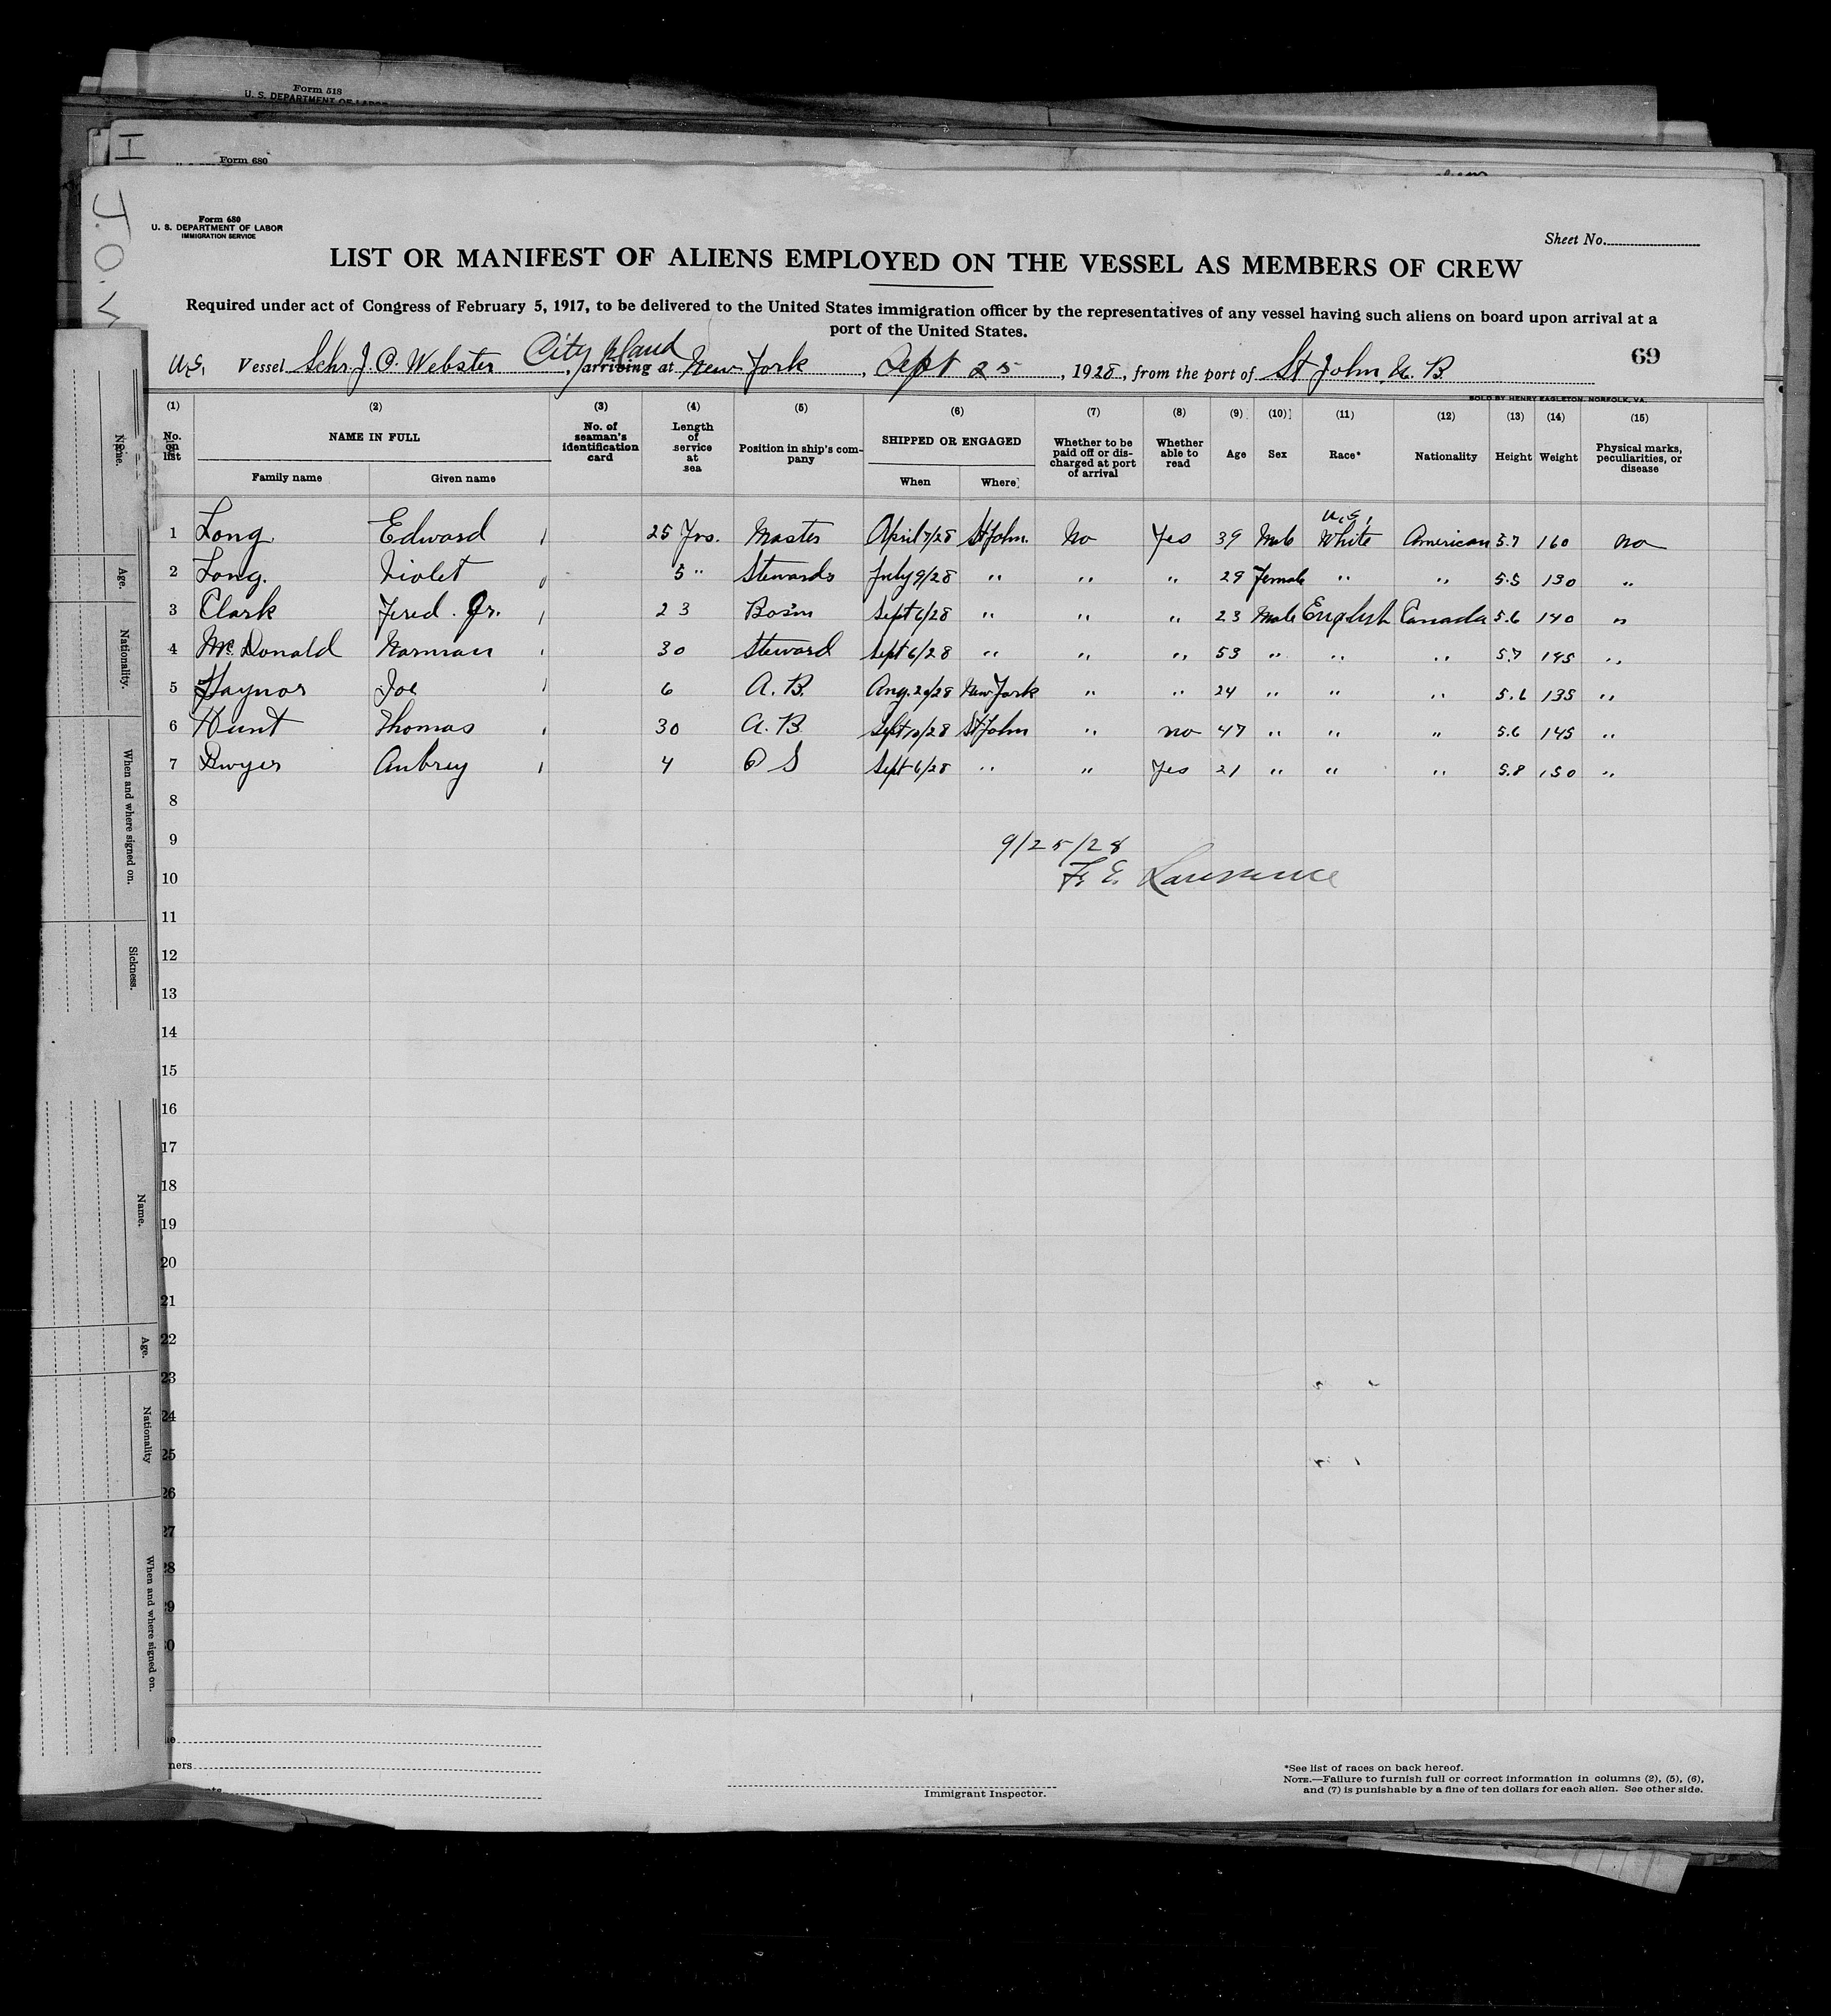 Form 518
U. S. DEPARTMENT OF LABOR
I
Form 680
J. O. W
Form 680
U. S. DEPARTMENT OF LABOR
IMMIGRATION SERVICE
Sheet No.
LIST OR MANIFEST OF ALIENS EMPLOYED ON THE VESSEL AS MEMBERS OF CREW
Required under act of Congress of February 5, 1917, to be delivered to the United States immigration officer by the representatives of any vessel having such aliens on board upon arrival at a
port of the United States.
69
City Island
U.S. Vessel Schr. J. O. Webster, arriving at New York, Sept 25, 1928, from the port of St John, N. B
SOLD BY HENRY EAGLETON, NORFOLK, VA.
(1) (2) (3) (4) (5) (6) (7) (8) (9) (10) (11) (12) (13) (14) (15)
No. on list NAME IN FULL Family name Given name No. of seaman's identification card Length of service at sea Position in ship's company SHIPPED OR ENGAGED When Where Whether to be paid off or discharged at port of arrival Whether able to read Age Sex Race* Nationality Height Weight Physical marks, peculiarities, or disease
U.S.
1 Long. Edward 25 Yrs. Master April 7/28 St John. No Yes 39 Male White American 5.7 160 no
2 Long. Violet 5 " Stewards July 9/28 " " " 29 Female " " 5.5 130 "
3 Clark Fred. Jr. 23 Bosn Sept 6/28 " " " 23 Male English Canada 5.6 140 "
4 McDonald Norman 30 Steward Sept 6/28 " " " 53 " " " 5.7 195 "
5 Haynor Joe 6 A. B. Aug. 20/28 New York " " 24 " " " 5.6 135 "
6 Hunt Thomas 30 A. B Sept 10/28 St John " no 47 " " " 5.6 145 "
7 Dwyer Aubrey 4 O S Sept 6/28 " " Yes 21 " " " 5.8 150 "
8
9
9/25/28
10
F. E. Lawrence
11
12
13
14
15
16
17
18
19
20
21
22
23
24
25
26
27
28
29
30
Name.
Age.
Nationality.
When and where signed on.
Sickness.
Name.
Age.
Nationality
When and where signed on.
Immigrant Inspector.
*See list of races on back hereof.
NOTE.—Failure to furnish full or correct information in columns (2), (5), (6),
and (7) is punishable by a fine of ten dollars for each alien. See other side.